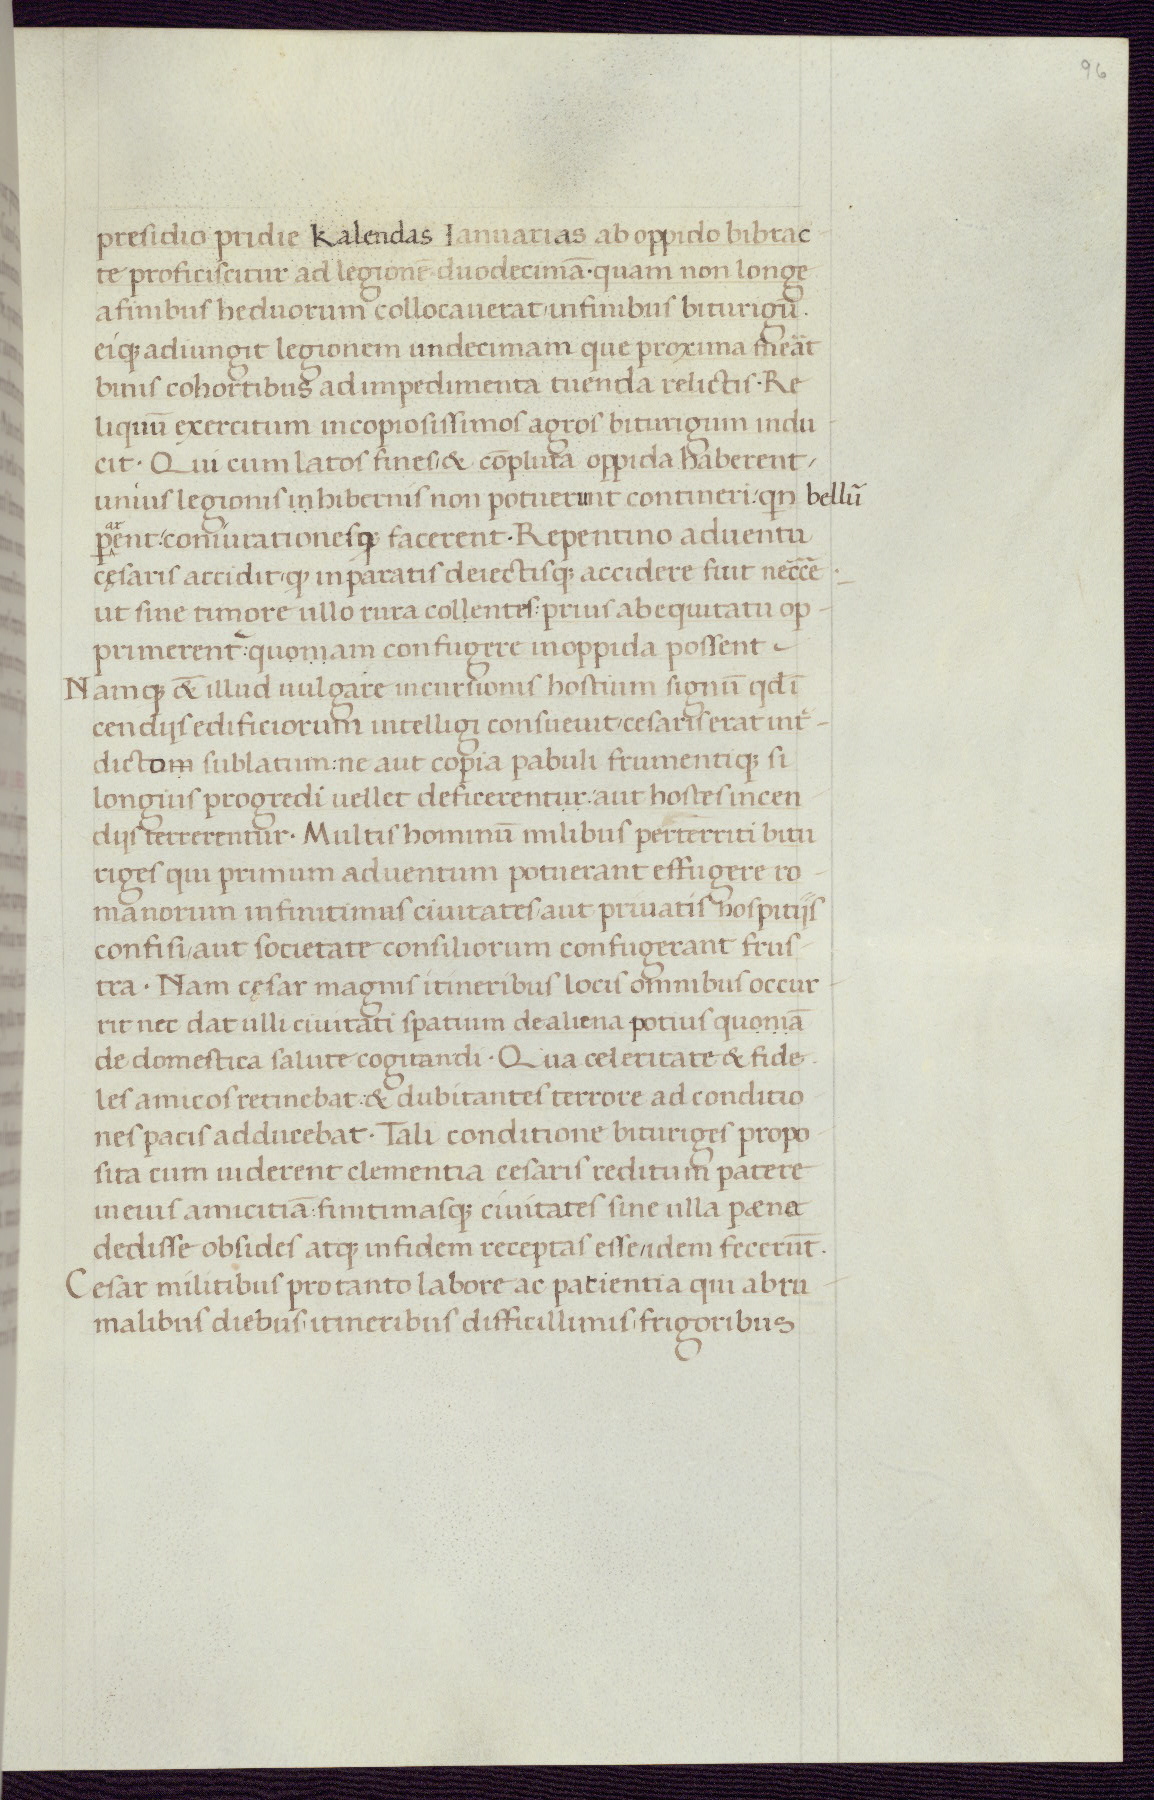 96
presidio pridie Kalendas Ianuarias ab oppido bibrac
te proficiscitur ad legionē duodecimā · quam non longe
a finibus heduorum collocauerat, in finibus biturigū.
eiqꝫ adiungit legionem undecimam que proxima
binis cohortibus ad impedimenta tuenda relictis · Re
liquū exercitum in copiosissimos agros biturigum indu
cit · Qui cum latos fines, & cōplura oppida haberent,
unius legionis in hibernis non potuerunt contineri: qn bellū
ꝑarent: comutationesqꝫ facerent · Repentino aduentu
cęsaris accidit, qꝫ inparatis deiectisqꝫ accidere fuit neccē
ut sine timore ullo rura collentes: prius ab equitatu op-
primerent᷑: quoniam confugere in oppida possent
Namqꝫ & illud uulgare incursionis hostium signū qd ī
cendijs edificiorum intelligi consueuit, cesaris erat int̄-
dictom sublatum: ne aut copia pabuli frumentiqꝫ si
longius progredi uellet deficerentur: aut hostes incen
dijs terrerentur · Multis hominū milibus perterriti bitu
riges qui primum aduentum potuerant effugere ro-
manorum in finitimus ciuitates, aut priuatis hospitijs
confisi, aut societate consiliorum confugerant frus-
tra · Nam cęsar magnis itineribus locis omnibus occur-
rit nec dat ulli ciuitati spatium de aliena potius quoniā
de domestica salute cogitandi · Qua celeritate & fide-
les amicos retinebat: & dubitantes terrore ad conditio
nes pacis adducebat · Tali conditione bituriges propo-
sita cum uiderent clementia cesaris reditum patere
in eius amicitiā: finitimasqꝫ ciuitates sine ulla pæna
dedisse obsides atqꝫ in fidem receptas esse, idem fecerūt.
Cesar militibus pro tanto labore ac patientia qui abru-
malibus diebus, itineribus difficillimis, frigoribus